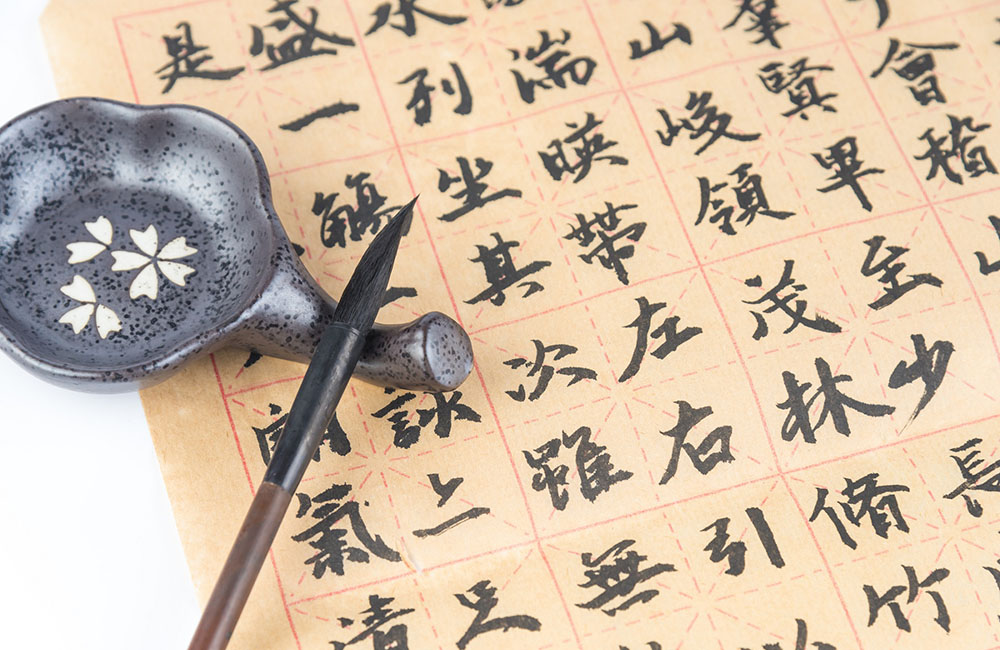 會稽山
羣賢畢至少長
山峻領茂林脩竹
湍映帶左右引
水列坐其次雖無
盛一觴一詠足
是氣清